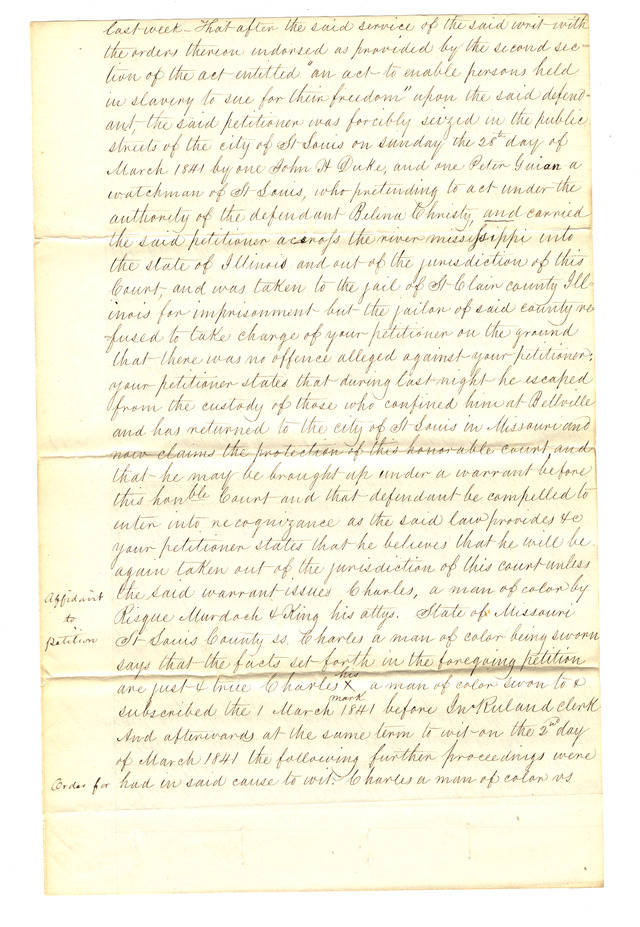 last week – That after the said service of the said writ with
the orders thereon indorsed as provided by the second sec-
tion of the act entitled "an act to enable persons held
in slavery to sue for their freedom" upon the said defend-
ant, the said petitioner was forcibly seized in the public
streets of the city of St Louis on sunday the 28th day of
March 1841 by one John H Duke, and one Peter Guian a
watchman of St Louis, who pretending to act under the
authority of the defendant Belina Christy, and carried
the said petitioner accross the river mississippi into
the state of Illinois and out of the jurisdiction of this
Court, and was taken to the jail of St Clair county Ill-
inois for imprisonment but the jailor of said county re-
fused to take charge of your petitioner on the ground
that there was no offence alleged against your petitioner;
your petitioner states that during last night he escaped
from the custody of those who confined him at Bellville
and has returned to the city of St Louis in Missouri and
now claims the protection of this honorable court and
that he may be brought up under a warrant before
this honble Court and that defendant be compelled to
enter into recognizance as the said law provides &c
your petitioner states that he believes that he will be
again taken out of the jurisdiction of this court unless
the said warrant issues Charles, a man of color by
Affidavit
to
petition
Risque Murdoch & King his attys. State of Missouri
St Louis County ss. Charles a man of color being sworn
says that the facts set forth in the foregoing petition
are just & true Charles his X mark a man of color swon to &
subscribed the 1 March 1841 before Jno Ruland clerk
And afterwards at the same term to wit on the 2nd day
of March 1841 the following further proceedings were
Order for
had in said cause to wit. Charles a man of color vs